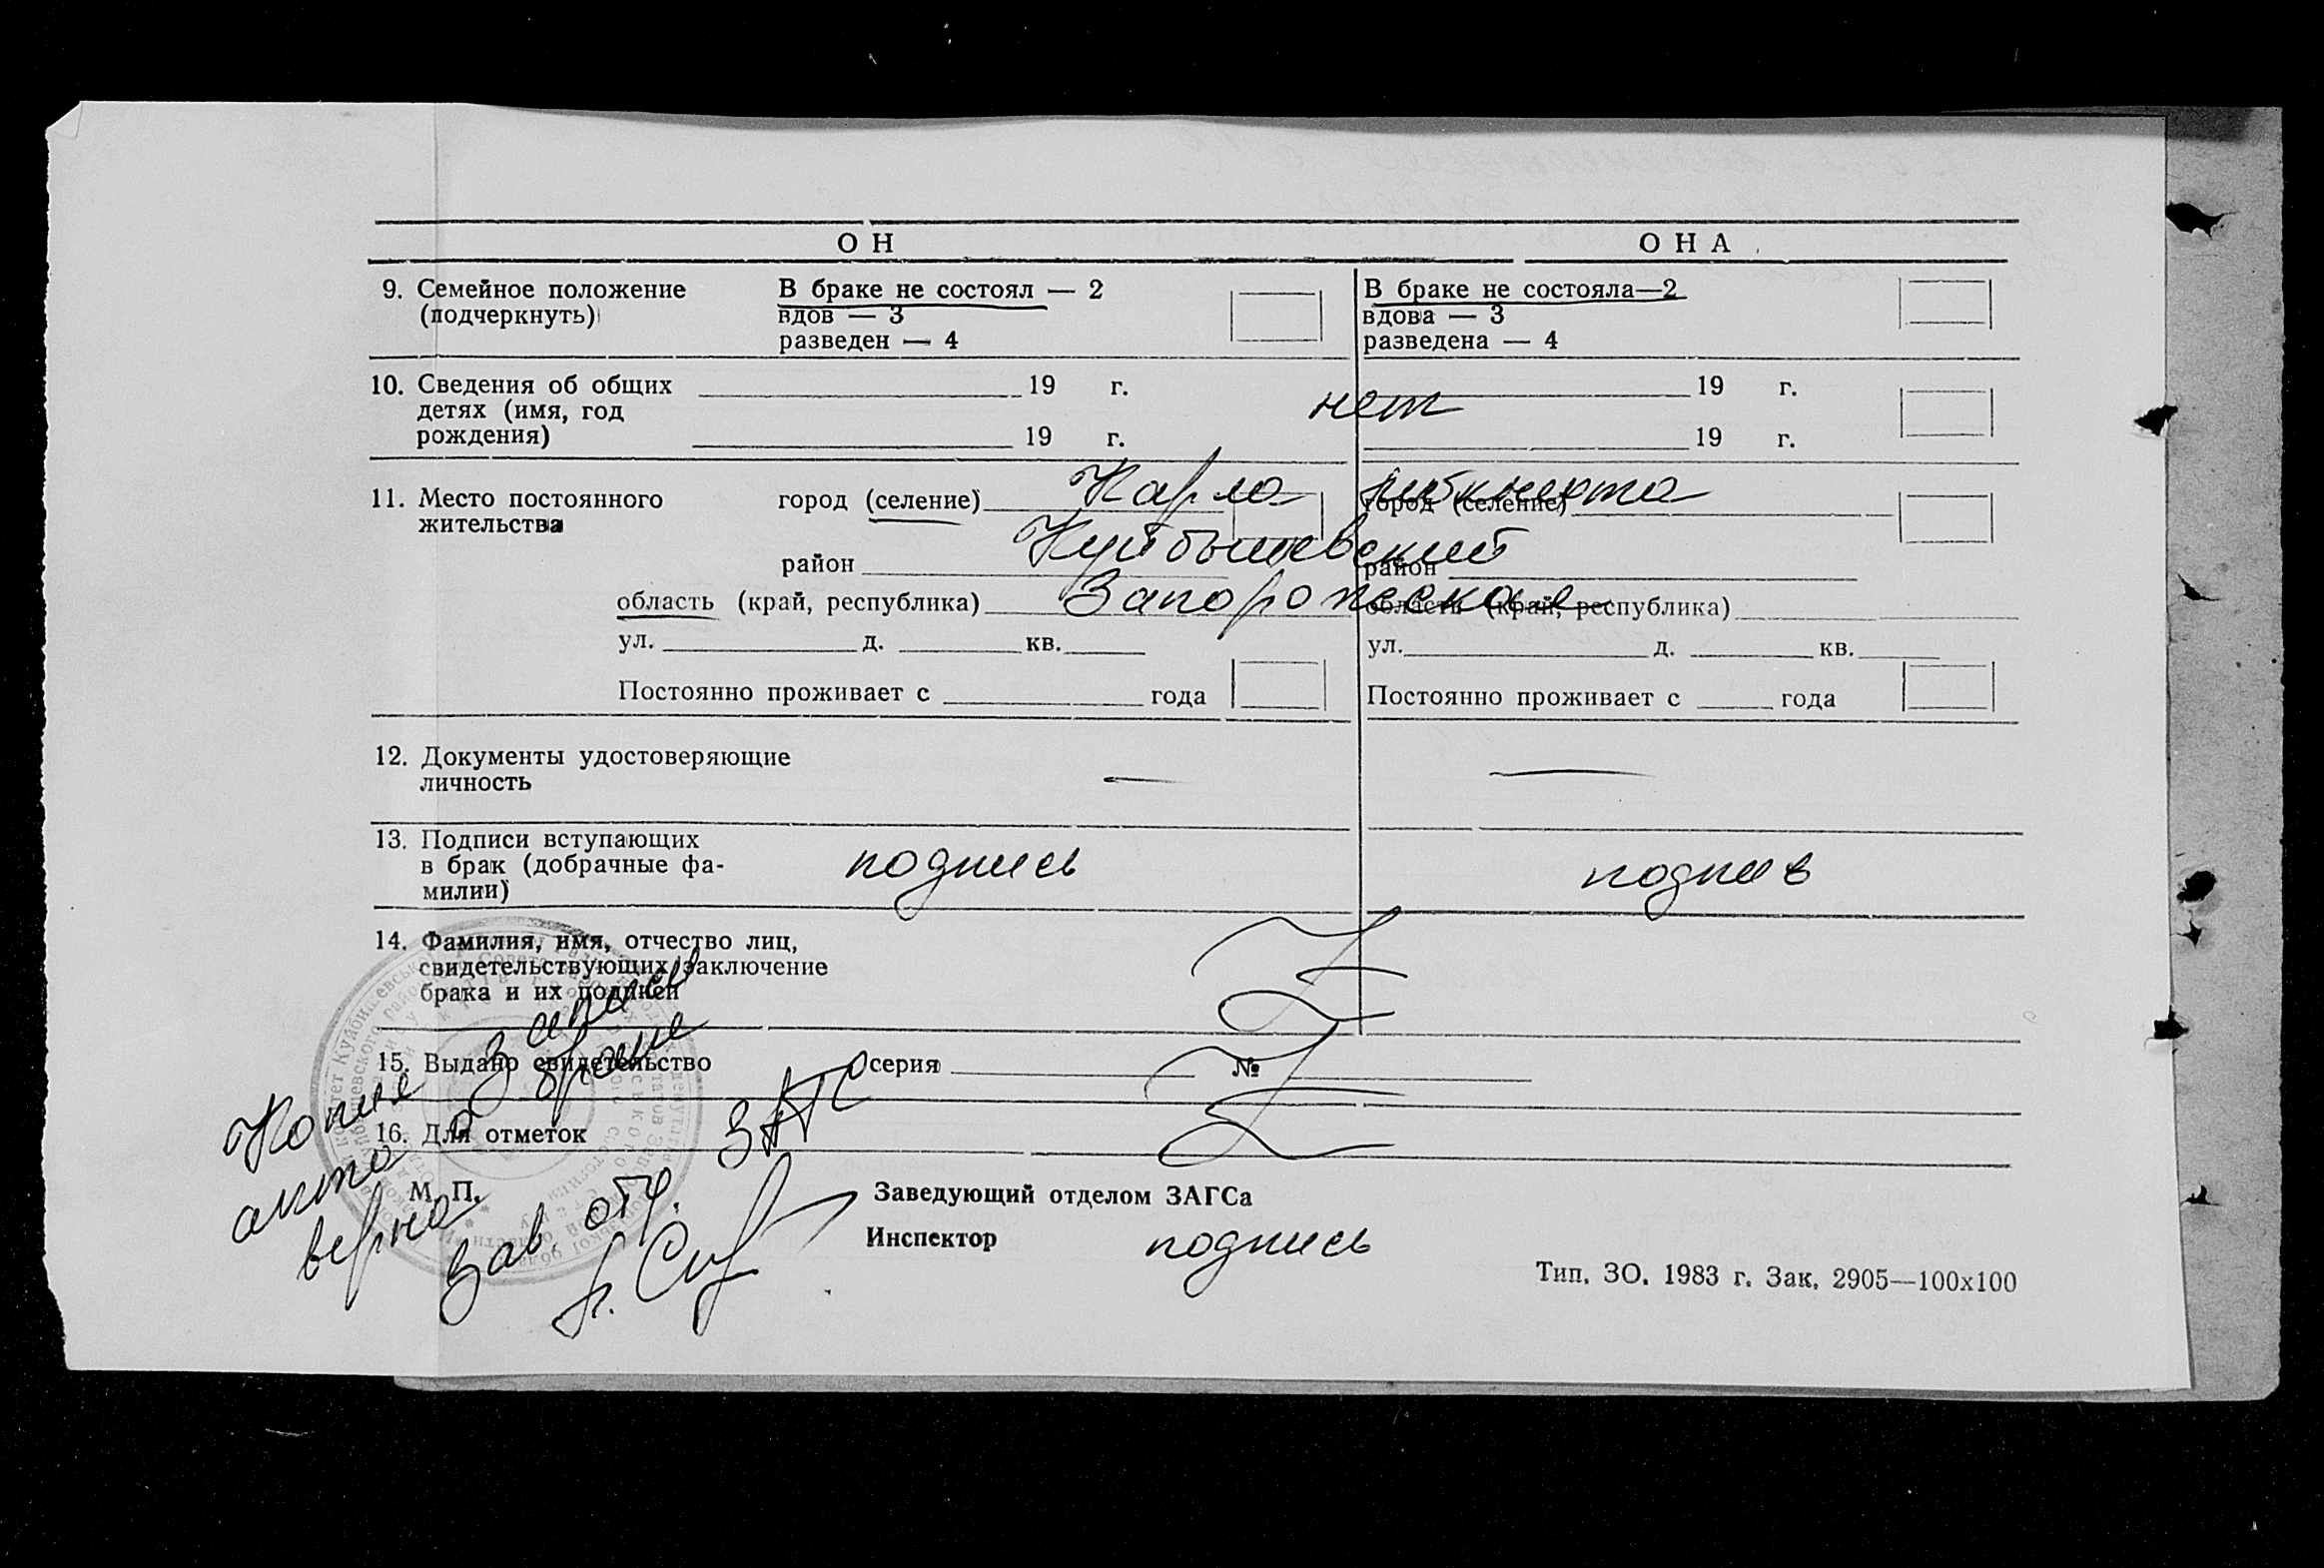 ОН ОНА
9. Семейное положение В браке не состоял — 2 В браке не состояла—2
(подчеркнуть) вдов — 3 вдова — 3
разведен — 4 разведена — 4
10. Сведения об общих 19 г. 19 г.
детях (имя, год нет
рождения) 19 г. 19 г.
11. Место постоянного город (селение) Карла Либкнехта город (селение)
жительства
район Куйбышевский район
область (край, республика) Запорожская область (край, республика)
ул. д. кв. ул. д. кв.
Постоянно проживает с года Постоянно проживает с года
12. Документы удостоверяющие — —
личность
13. Подписи вступающих
в брак (добрачные фа- подпись подпись
милии)
14. Фамилия, имя, отчество лиц,
свидетельствующих заключение
брака и их подписи
15. Выдано свидетельство серия №
16. Для отметок
Копия записи
акта о браке
верна
Зав. отд. ЗАГС
М. П. Заведующий отделом ЗАГСа
Инспектор подпись
Тип. ЗО. 1983 г. Зак. 2905—100х100